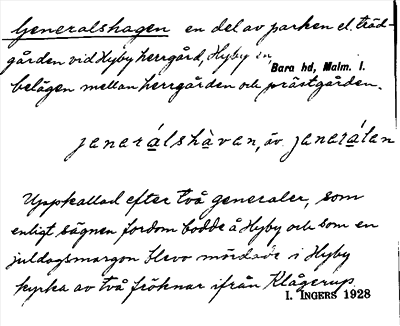 Generalshagen en del av parken el. träd-
gården vid Hyby herrgård, Hyby sn, Bara hd, Malm. l.
belägen mellan herrgården och prästgården.
jenarálshàvan, äv. jenarálan
Uppkallad efter två generaler, som
enligt sägnen fordom bodde å Hyby och som en
juldagsmorgon blevo mördade i Hyby
kyrka av två fröknar ifrån Klågerup.
I. INGERS 1928